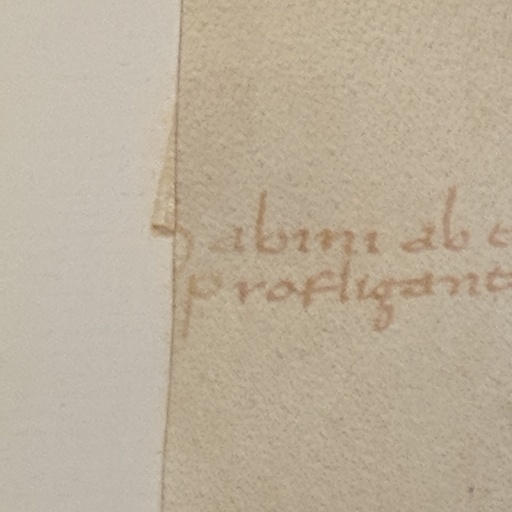 Sabini ab
profligant